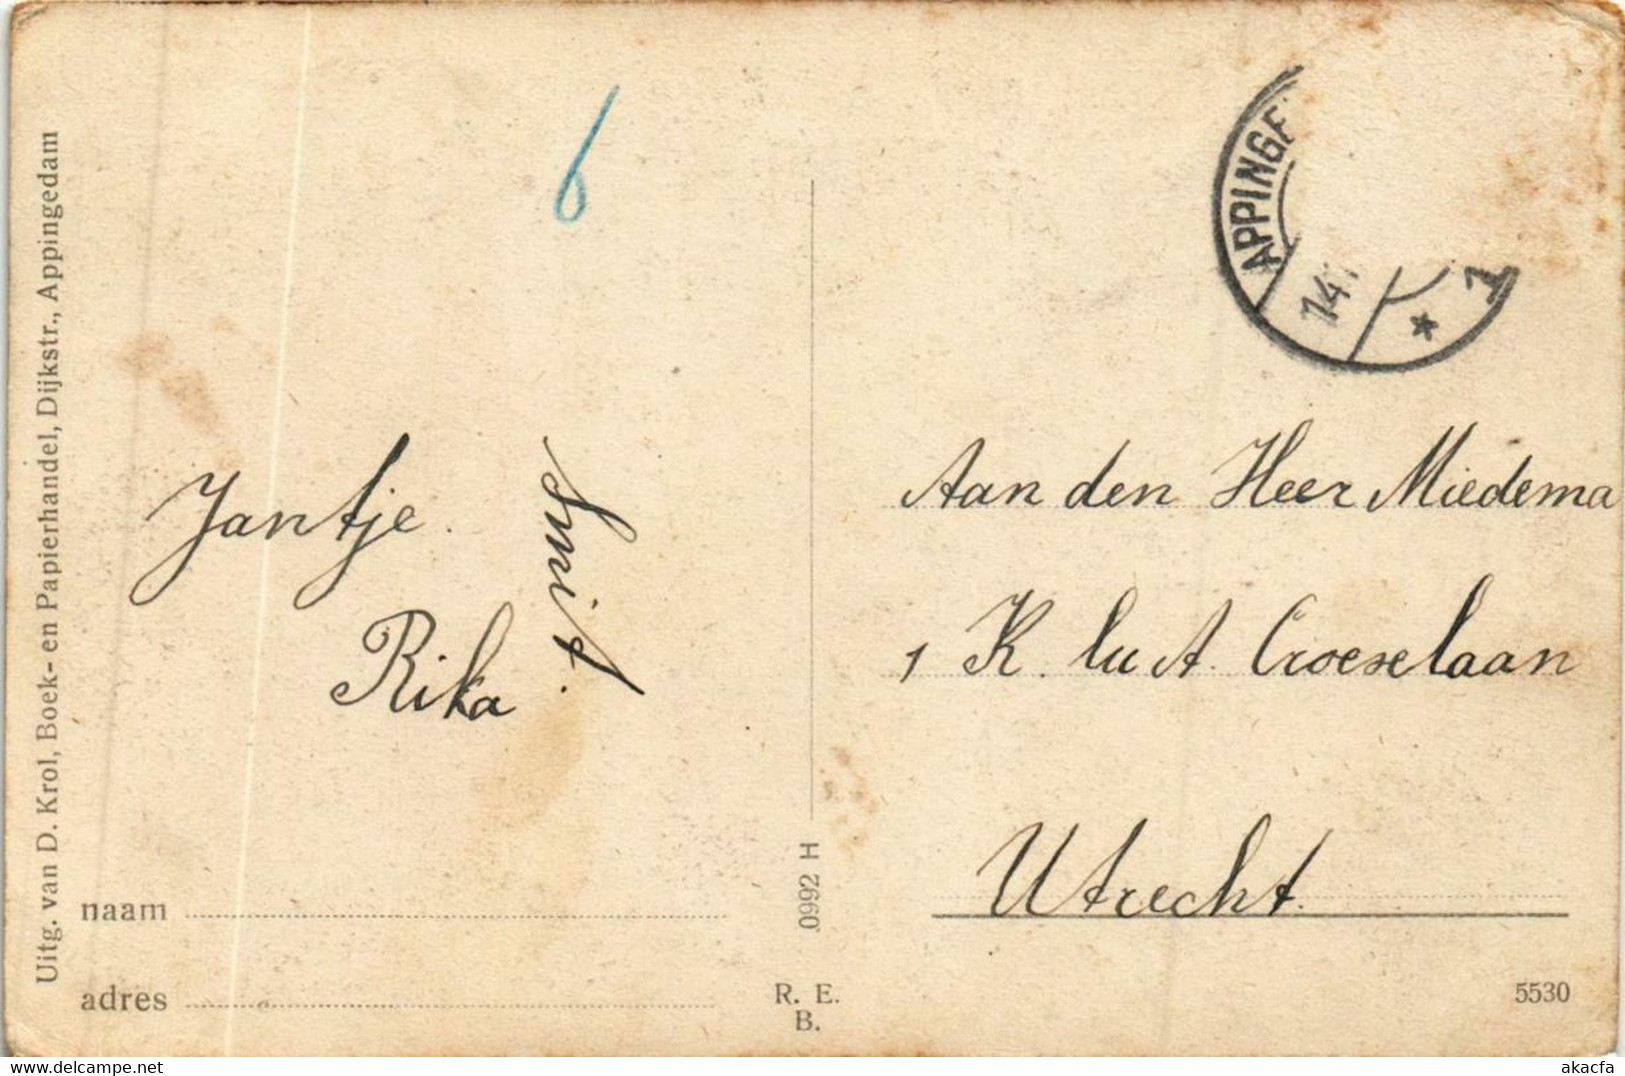 Uitg. van D. Krol, Boek- en Papierhandel, Dijkstr., Appingedam
6
Jantje.
Rika
Smit.
naam
adres
0992 H
R. E.
B.
APPINGE
14
1
Aan den Heer Miedema
1 K. lu A. Croeselaan
Utrecht.
5530
akacfa